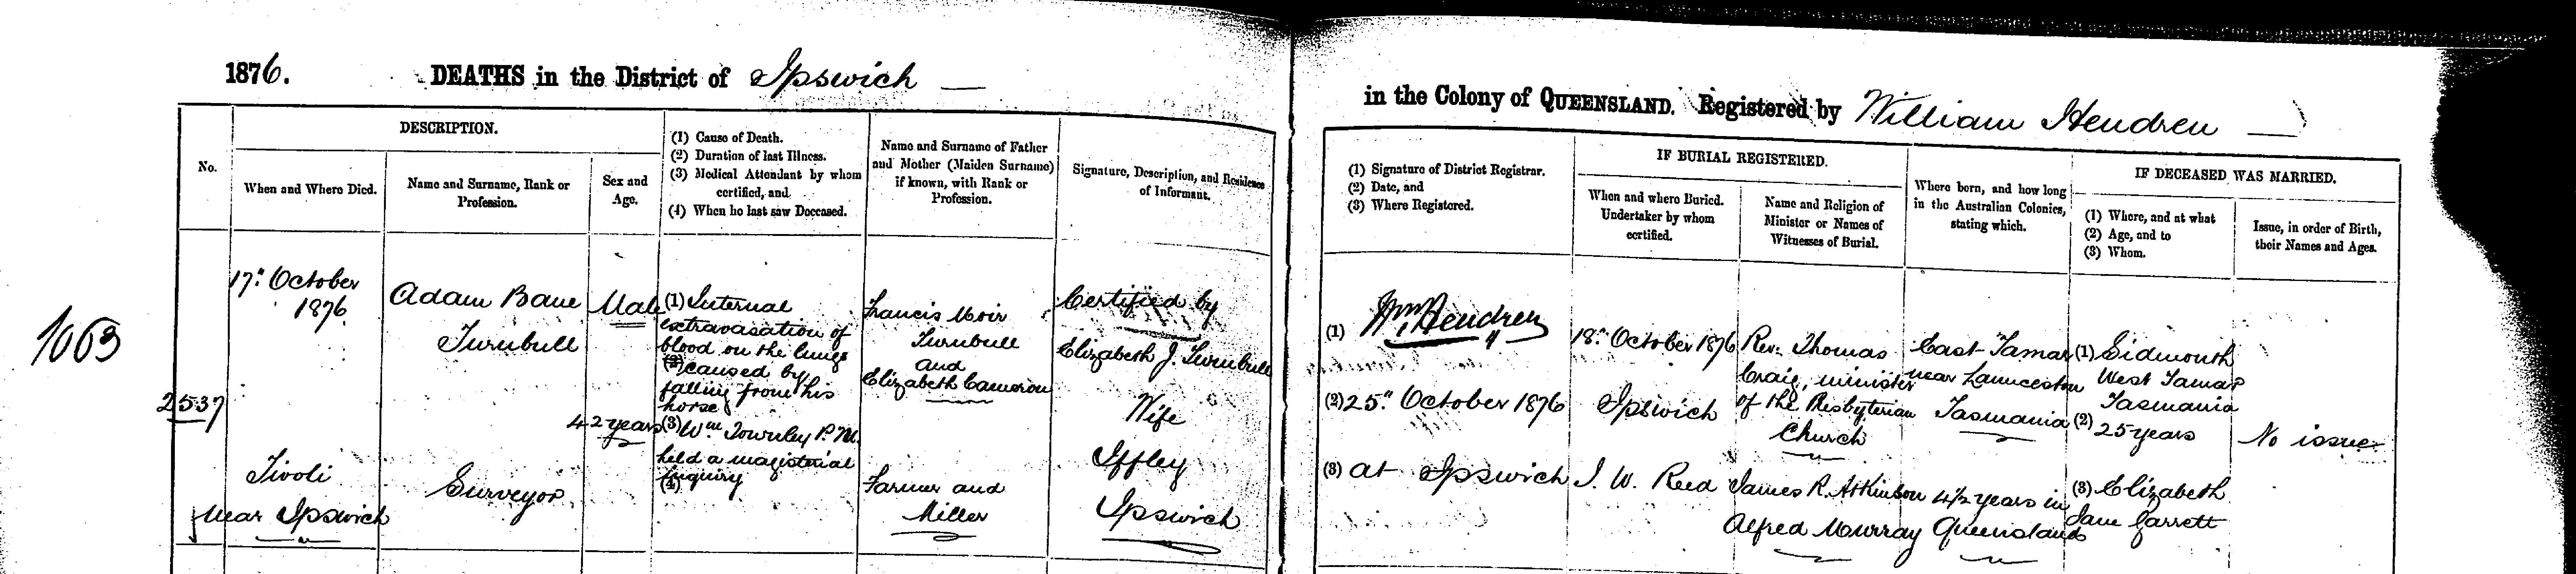 1876. DEATHS in the District of Ipswich
in the Colony of QUEENSLAND. Registered by William Hendren
No.
DESCRIPTION.
When and Where Died.
Name and Surname, Rank or
Profession.
Sex and
Age.
(1) Cause of Death.
(2) Duration of last Illness.
(3) Medical Attendant by whom
certified, and
(4) When he last saw Deceased.
Name and Surname of Father
and Mother (Maiden Surname)
if known, with Rank or
Profession.
Signature, Description, and Residence
of Informant.
(1) Signature of District Registrar.
(2) Date, and
(3) Where Registered.
IF BURIAL REGISTERED.
When and where Buried.
Undertaker by whom
certified.
Name and Religion of
Minister or Names of
Witnesses of Burial.
Where born, and how long
in the Australian Colonies,
stating which.
IF DECEASED WAS MARRIED.
(1) Where, and at what
(2) Age, and to
(3) Whom.
Issue, in order of Birth,
their Names and Ages.
1063
2537
17th October
1876
Tivoli
near Ipswich
Adam Bane
Turnbull
Surveyor
Male
42 years
(1) Internal
extravasation of
blood on the lungs
(2) caused by
falling from his
horse
(3) Wm Townley P.M.
held a magisterial
inquiry
(4)
Francis Moir
Turnbull
and
Elizabeth Cameron
Farmer and
Miller
Certified by
Elizabeth J. Turnbull
Wife
Iffley
Ipswich
(1) Wm Hendren
(2) 25th October 1876
(3) at Ipswich
18th October 1876
Ipswich
J. W. Reed
Rev. Thomas
Craig, minister
of the Presbyterian
Church
James R. Atkinson
Alfred Murray
East Tamar
near Launceston
Tasmania
4½ years in
Queensland
(1) Sidmouth
West Tamar
Tasmania
(2) 25 years
(3) Elizabeth
Jane Garrett
No issue